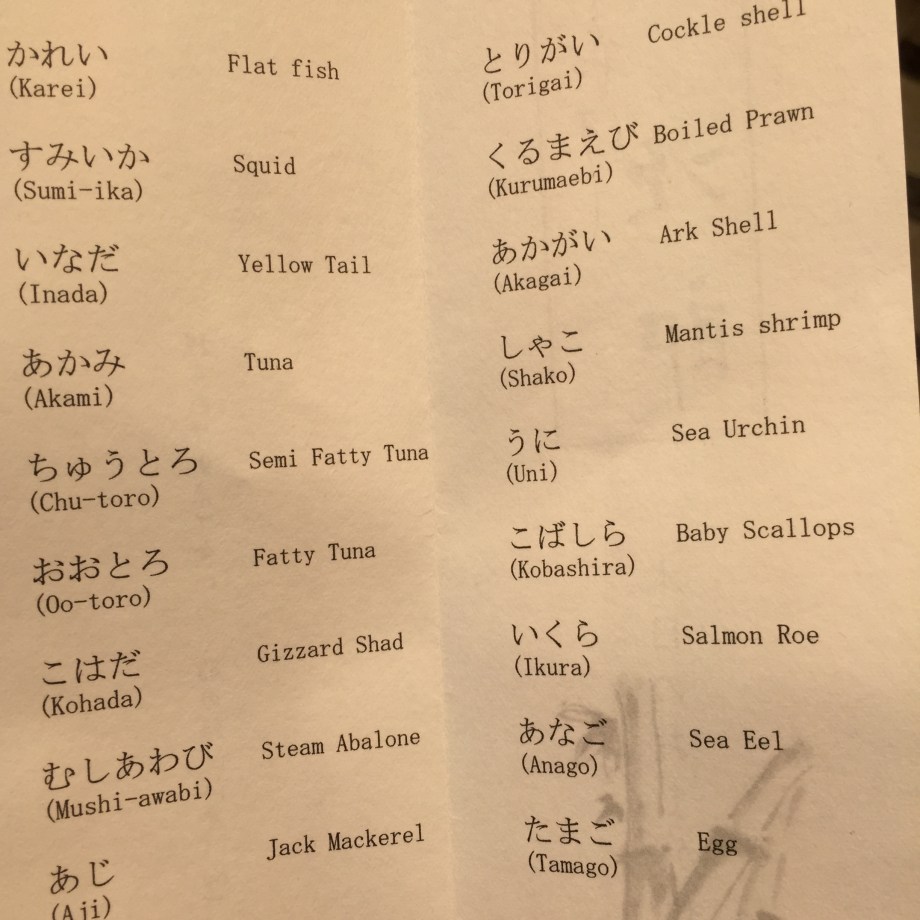 かれい Flat fish
(Karei)
すみいか Squid
(Sumi-ika)
いなだ Yellow Tail
(Inada)
あかみ Tuna
(Akami)
ちゅうとろ Semi Fatty Tuna
(Chu-toro)
おおとろ Fatty Tuna
(Oo-toro)
こはだ Gizzard Shad
(Kohada)
むしあわび Steam Abalone
(Mushi-awabi)
あじ Jack Mackerel
(Aji)
とりがい Cockle shell
(Torigai)
くるまえび Boiled Prawn
(Kurumaebi)
あかがい Ark Shell
(Akagai)
しゃこ Mantis shrimp
(Shako)
うに Sea Urchin
(Uni)
こばしら Baby Scallops
(Kobashira)
いくら Salmon Roe
(Ikura)
あなご Sea Eel
(Anago)
たまご Egg
(Tamago)